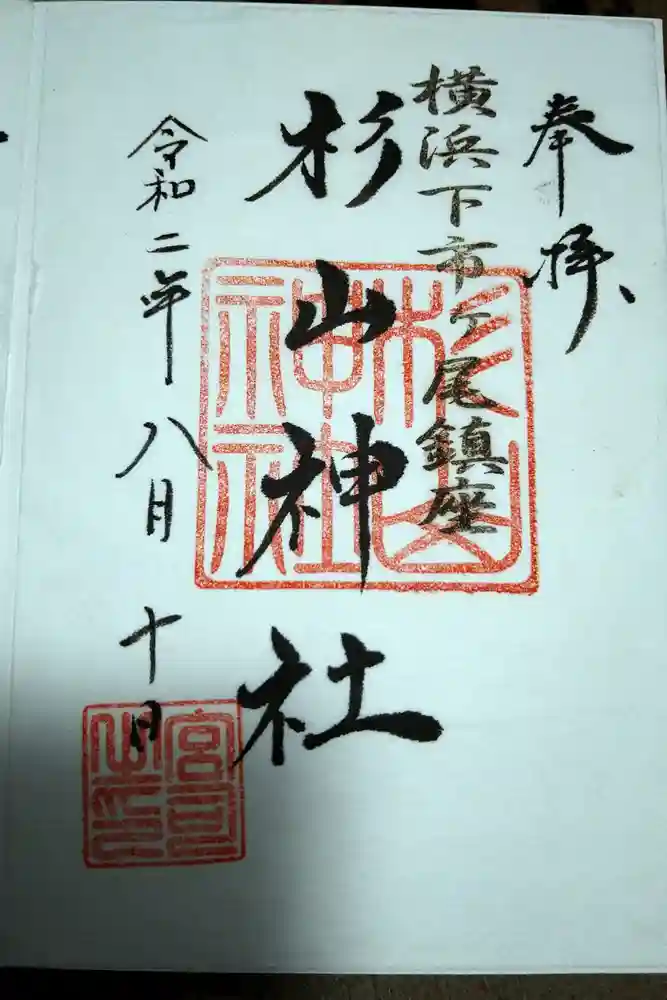 奉拝
横浜下市ヶ尾鎮座
杉山神社
令和二年八月十日
杉山神社
宮司之印